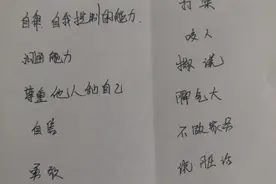 自律 自我控制的能力
沟通能力
尊重他人和自己
自信
勇敢
打架
咬人
撒谎
脾气大
不做家务
说脏话